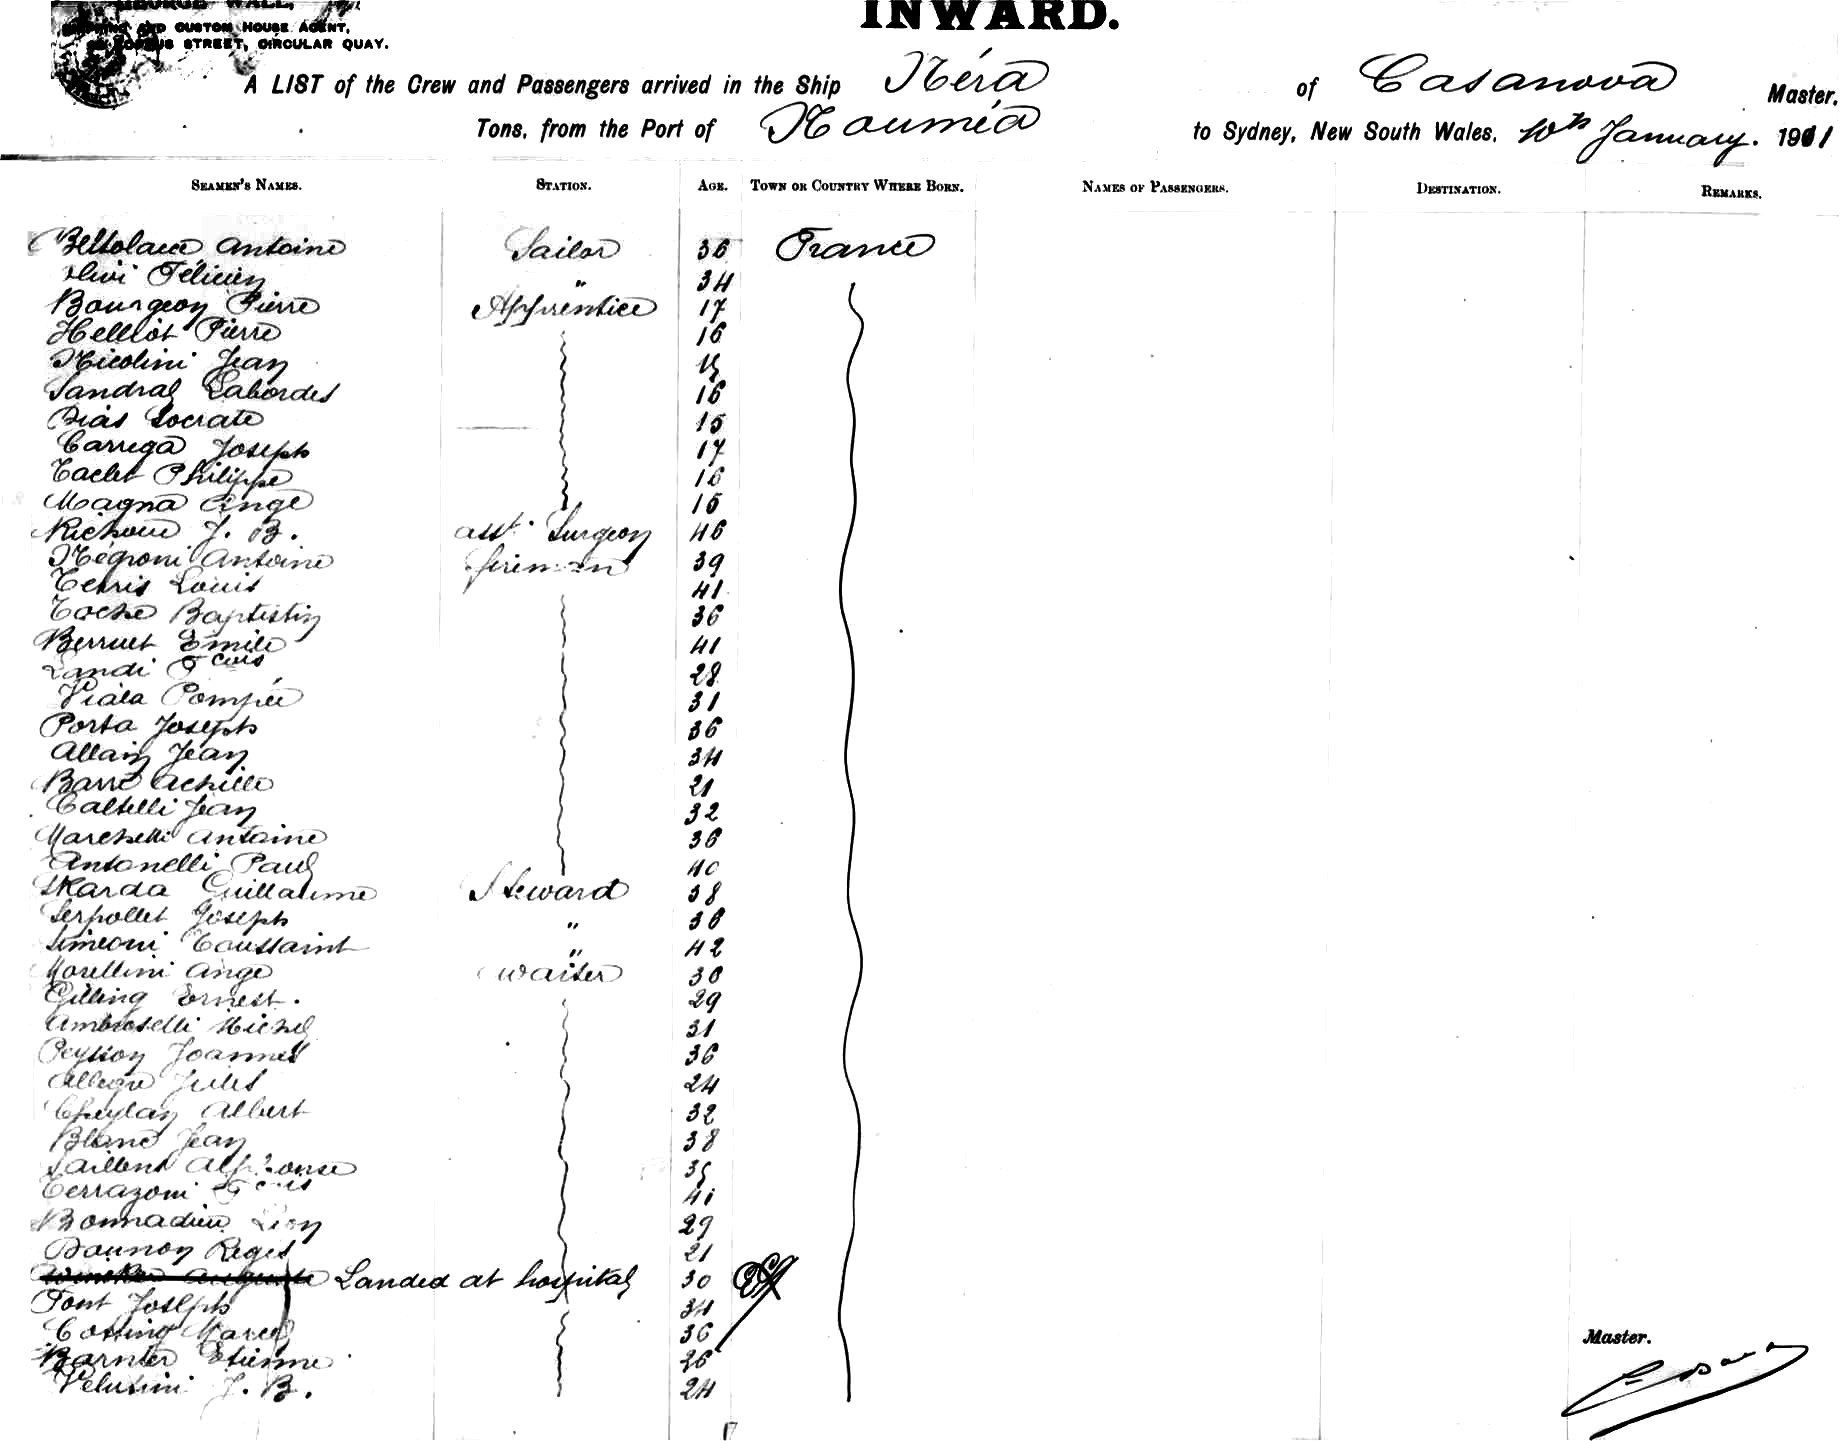 GEORGE WALL,
AND CUSTOM HOUSE AGENT,
STREET, CIRCULAR QUAY.
INWARD.
A LIST of the Crew and Passengers arrived in the Ship Néra of Casanova Master.
Tons, from the Port of Nouméa to Sydney, New South Wales, 10th January. 1901
SEAMEN'S NAMES. STATION. AGE. TOWN OR COUNTRY WHERE BORN. NAMES OF PASSENGERS. DESTINATION. REMARKS.
Antoine Sailor 36 France
Félicien " 34
Bourgeon Pierre Apprentice 17
Helliot Pierre 16
Nicolini Jean 15
Sandral Labordes 16
Bias Socrate 15
Carrega Joseph 17
Taclet Philippe 16
Magna Ange 15
J. B. asst. Surgeon 46
Négroni Antoine fireman 39
Terris Louis 41
Toche Baptistin 36
Berruet Emile 41
Landi Fcois 28
Viala Pompée 31
Porta Joseph 36
Allain Jean 34
Barre Achille 21
Caltelli Jean 32
Marchetti Antoine 36
Antonelli Paul 40
Skarda Guillaume Steward 38
Serpollet Joseph " 38
Simeoni Toussaint " 42
Morellini Ange waiter 30
Gilling Ernest. 29
Ambroselli Michel 31
Peysson Joannes 36
Allegre Jules 24
Cheylan Albert 32
Blanc Jean 38
Saillens Alphonse 35
Terrazoni Fcois 41
Bonnadieu Léon 29
Bounon Reges 21
Auguste Landed at hospital 30
Font Joseph 34
Marcel 36
Barnier Etienne 26
Velutini J. B. 24
Master.